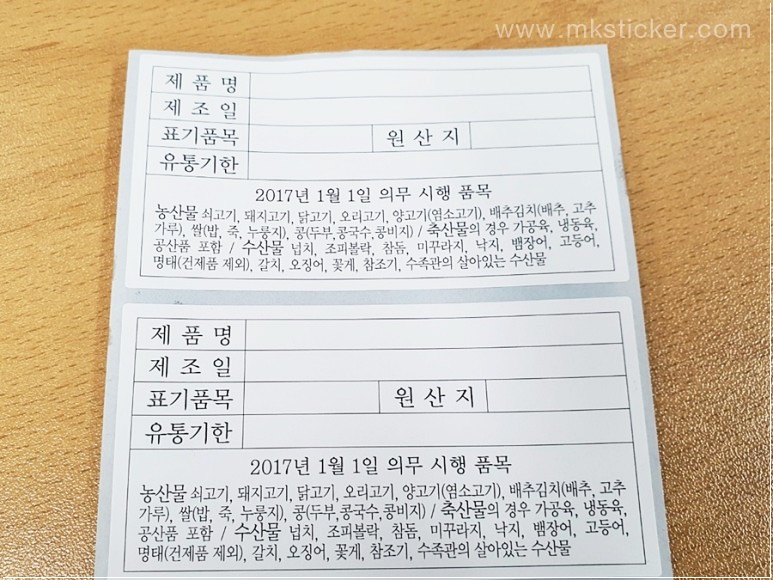 www.mksticker.com
제 품 명
제 조 일
표기품목 원 산 지
유통기한
2017년 1월 1일 의무 시행 품목
농산물 쇠고기, 돼지고기, 닭고기, 오리고기, 양고기(염소고기), 배추김치(배추, 고추
가루), 쌀(밥, 죽, 누룽지), 콩(두부,콩국수,콩비지) / 축산물의 경우 가공육, 냉동육,
공산품 포함 / 수산물 넙치, 조피볼락, 참돔, 미꾸라지, 낙지, 뱀장어, 고등어,
명태(건제품 제외), 갈치, 오징어, 꽃게, 참조기, 수족관의 살아있는 수산물
제 품 명
제 조 일
표기품목 원 산 지
유통기한
2017년 1월 1일 의무 시행 품목
농산물 쇠고기, 돼지고기, 닭고기, 오리고기, 양고기(염소고기), 배추김치(배추, 고추
가루), 쌀(밥, 죽, 누룽지), 콩(두부,콩국수,콩비지) / 축산물의 경우 가공육, 냉동육,
공산품 포함 / 수산물 넙치, 조피볼락, 참돔, 미꾸라지, 낙지, 뱀장어, 고등어,
명태(건제품 제외), 갈치, 오징어, 꽃게, 참조기, 수족관의 살아있는 수산물